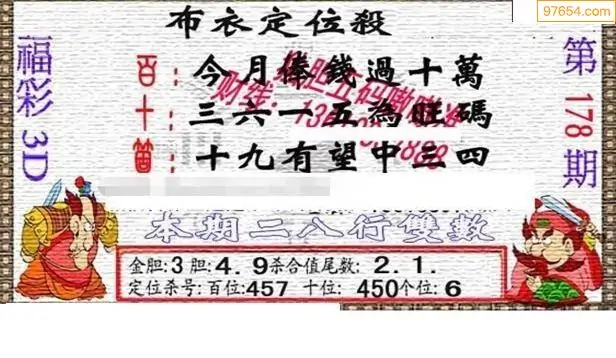 97654.com
布衣定位殺
福彩3D
第178期
百：今月俸錢過十萬
十：三六一五為旺碼
個：十九有望中三四
本期二八行雙數
金胆:3胆:4.9杀合值尾数:2.1.
定位杀号:百位:457 十位:450个位:6